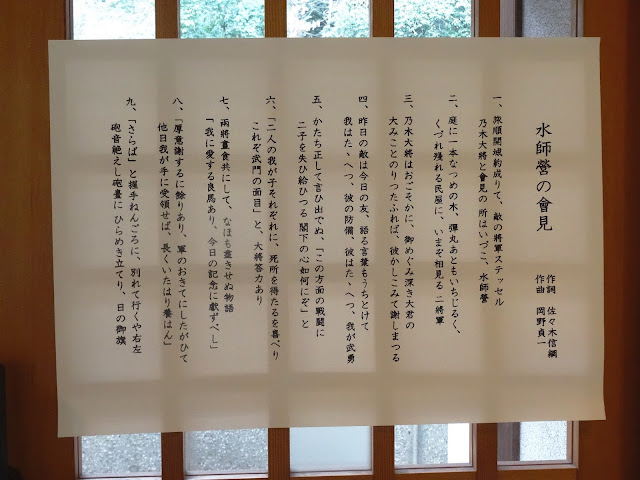 水師營の會見
作詞 佐々木信綱
作曲 岡野貞一
一、旅順開城約成りて、敵の將軍ステッセル
乃木大將と會見の 所はいづこ、水師營
二、庭に一本なつめの木、彈丸あともいちじるく、
くづれ殘れる民屋に、いまぞ相見る 二將軍
三、乃木大將はおごそかに、御めぐみ深き大君の
大みことのりつたふれば、彼かしこみて謝しまつる
四、昨日の敵は今日の友、語る言葉もうちとけて
我はたゝへつ、彼の防備、彼はたゝへつ、我が武勇
五、かたち正して言ひ出でぬ、「この方面の戰鬪に
二子を失ひ給ひつる 閣下の心如何にぞ」と
六、「二人の我が子それぞれに、死所を得たるを喜べり
これぞ武門の面目」と、大將答力あり
七、兩將晝食共にして、なほも盡きせぬ物語
「我に愛する良馬あり、今日の記念に獻ずべし」
八、「厚意謝するに餘りあり、軍のおきてにしたがひて
他日我が手に受領せば、長くいたはり養はん」
九、「さらば」と握手ねんごろに、別れて行くや右左
砲音絶えし砲臺に ひらめき立てり、日の御旗